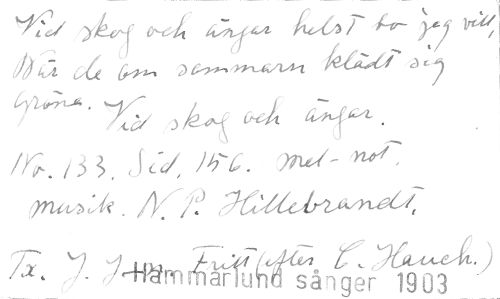 Vid skog och ängar helst bo jag vill,
När de om sommarn klädt sig
gröna. Vid skog och ängar.
No. 133. Sid. 156. mel-not.
musik. N. P. Hillebrandt.
Tx. J. J-n. Fritt (efter C. Hauch.)
Hammarlund sånger 1903